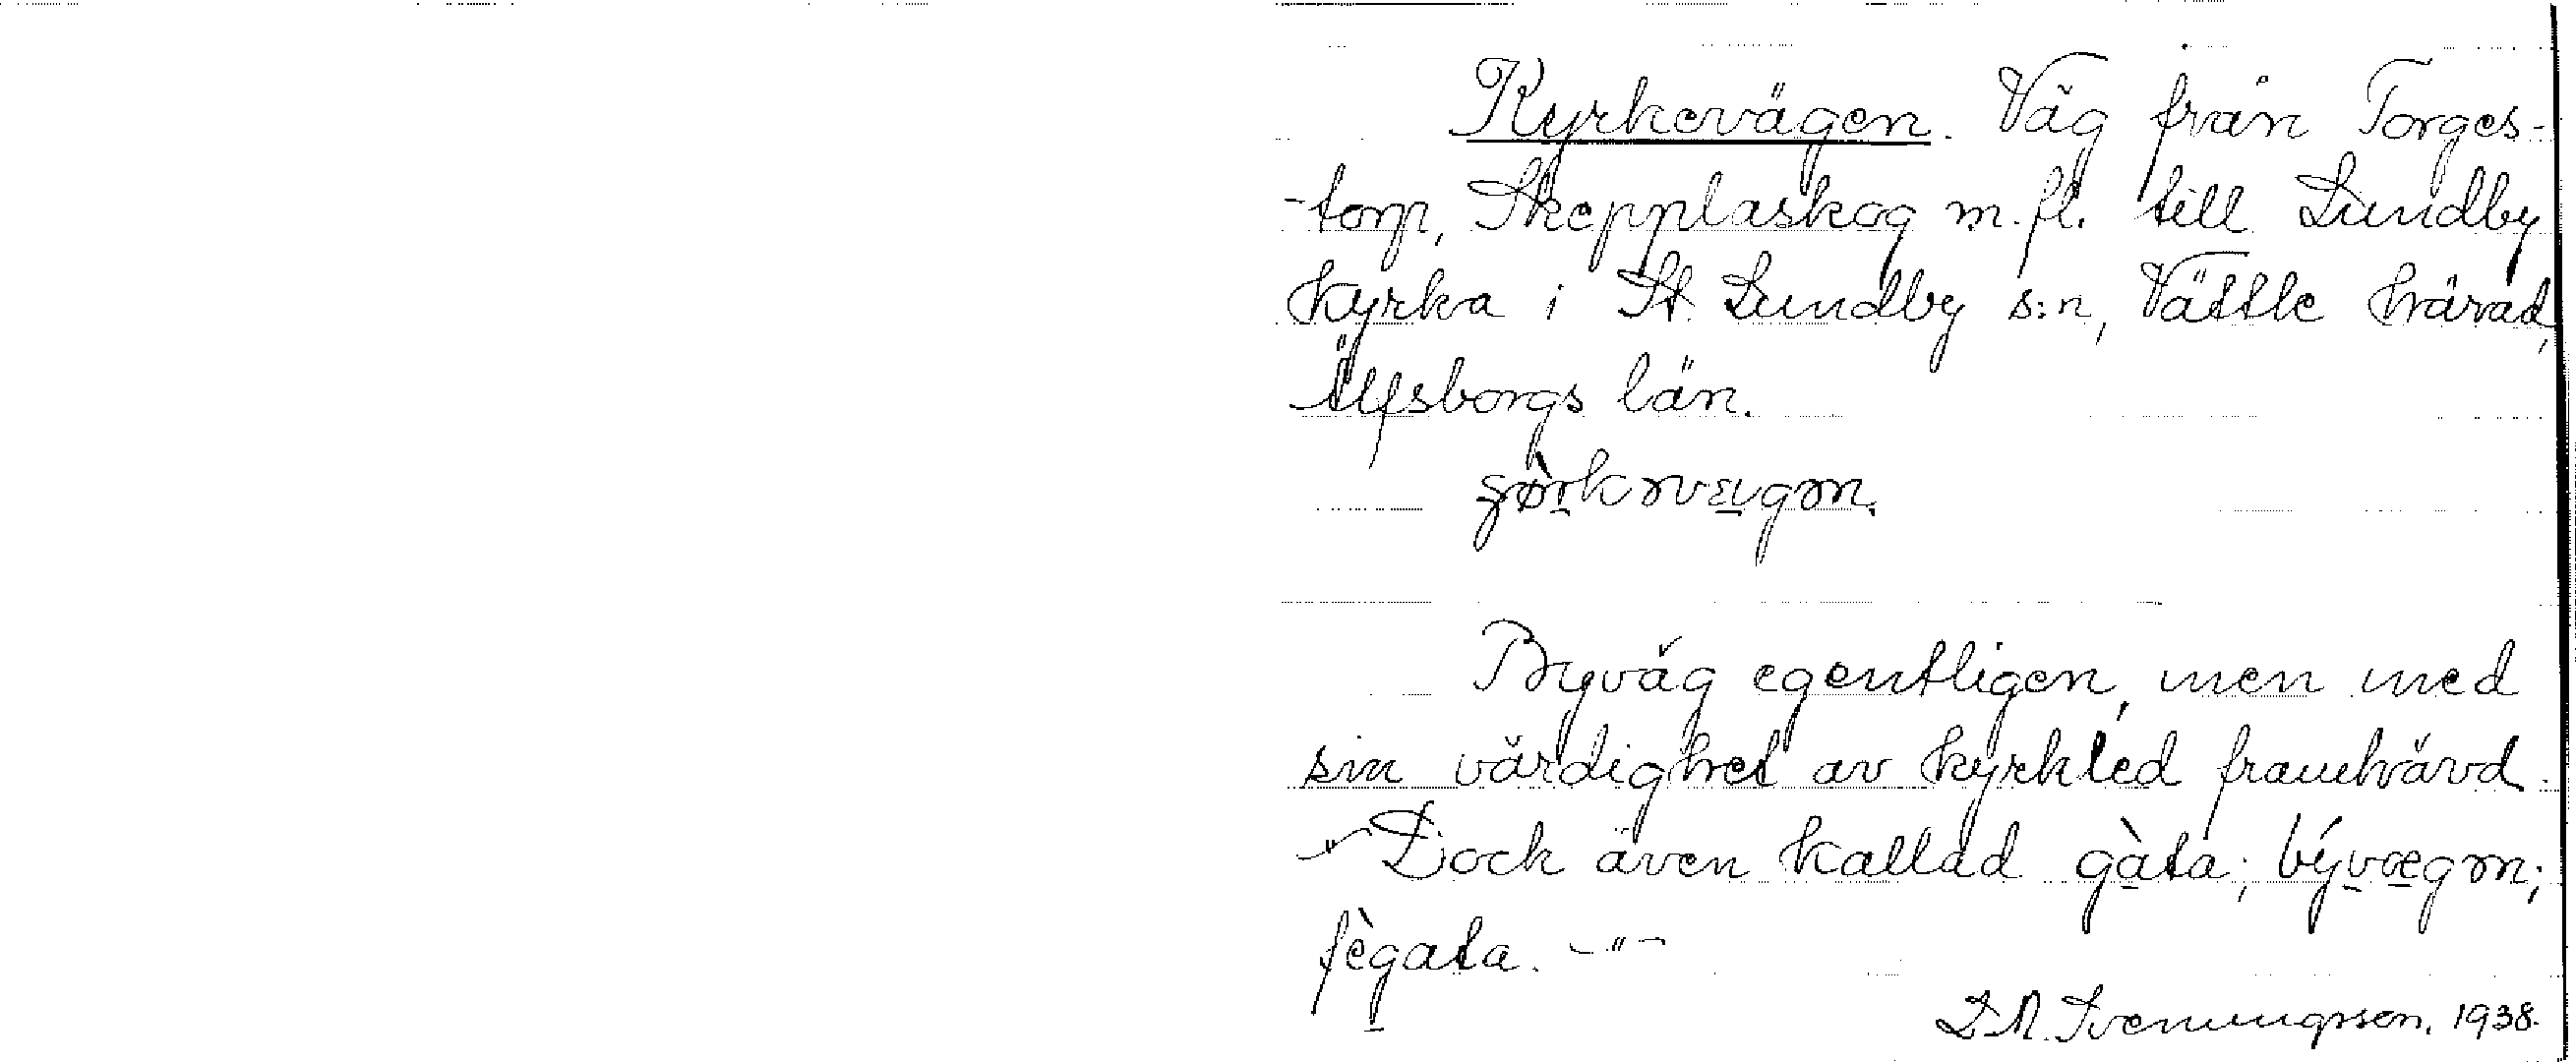 Kyrkevägen. Väg från Torges-
-torp, Skepplaskog m.fl. till Lundby
kyrka i St. Lundby s:n, Vättle härad,
Älfsborgs län.
Byväg egentligen, men med
sin värdighet av kyrkled framhävd.
-"- Dock även kallad gàta; bývægən;
fègata. -"-
Svenungsson, 1938.